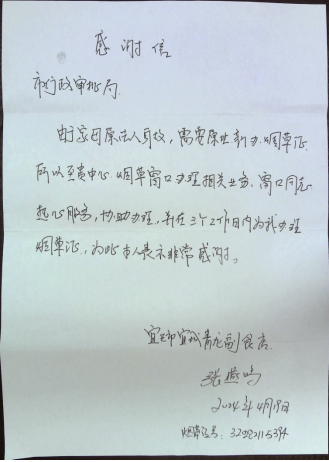 感谢信
市行政审批局
由于家因原法人身故，需要原业新办烟草证
所以至贵中心烟草窗口办理相关业务，窗口同志
热心服务，协助办理，并在三个工作日内为我办理
烟草证，为此本人表示非常感谢。
宜城青龙副食店
张燕鸣
2024年4月19日
烟草证号：